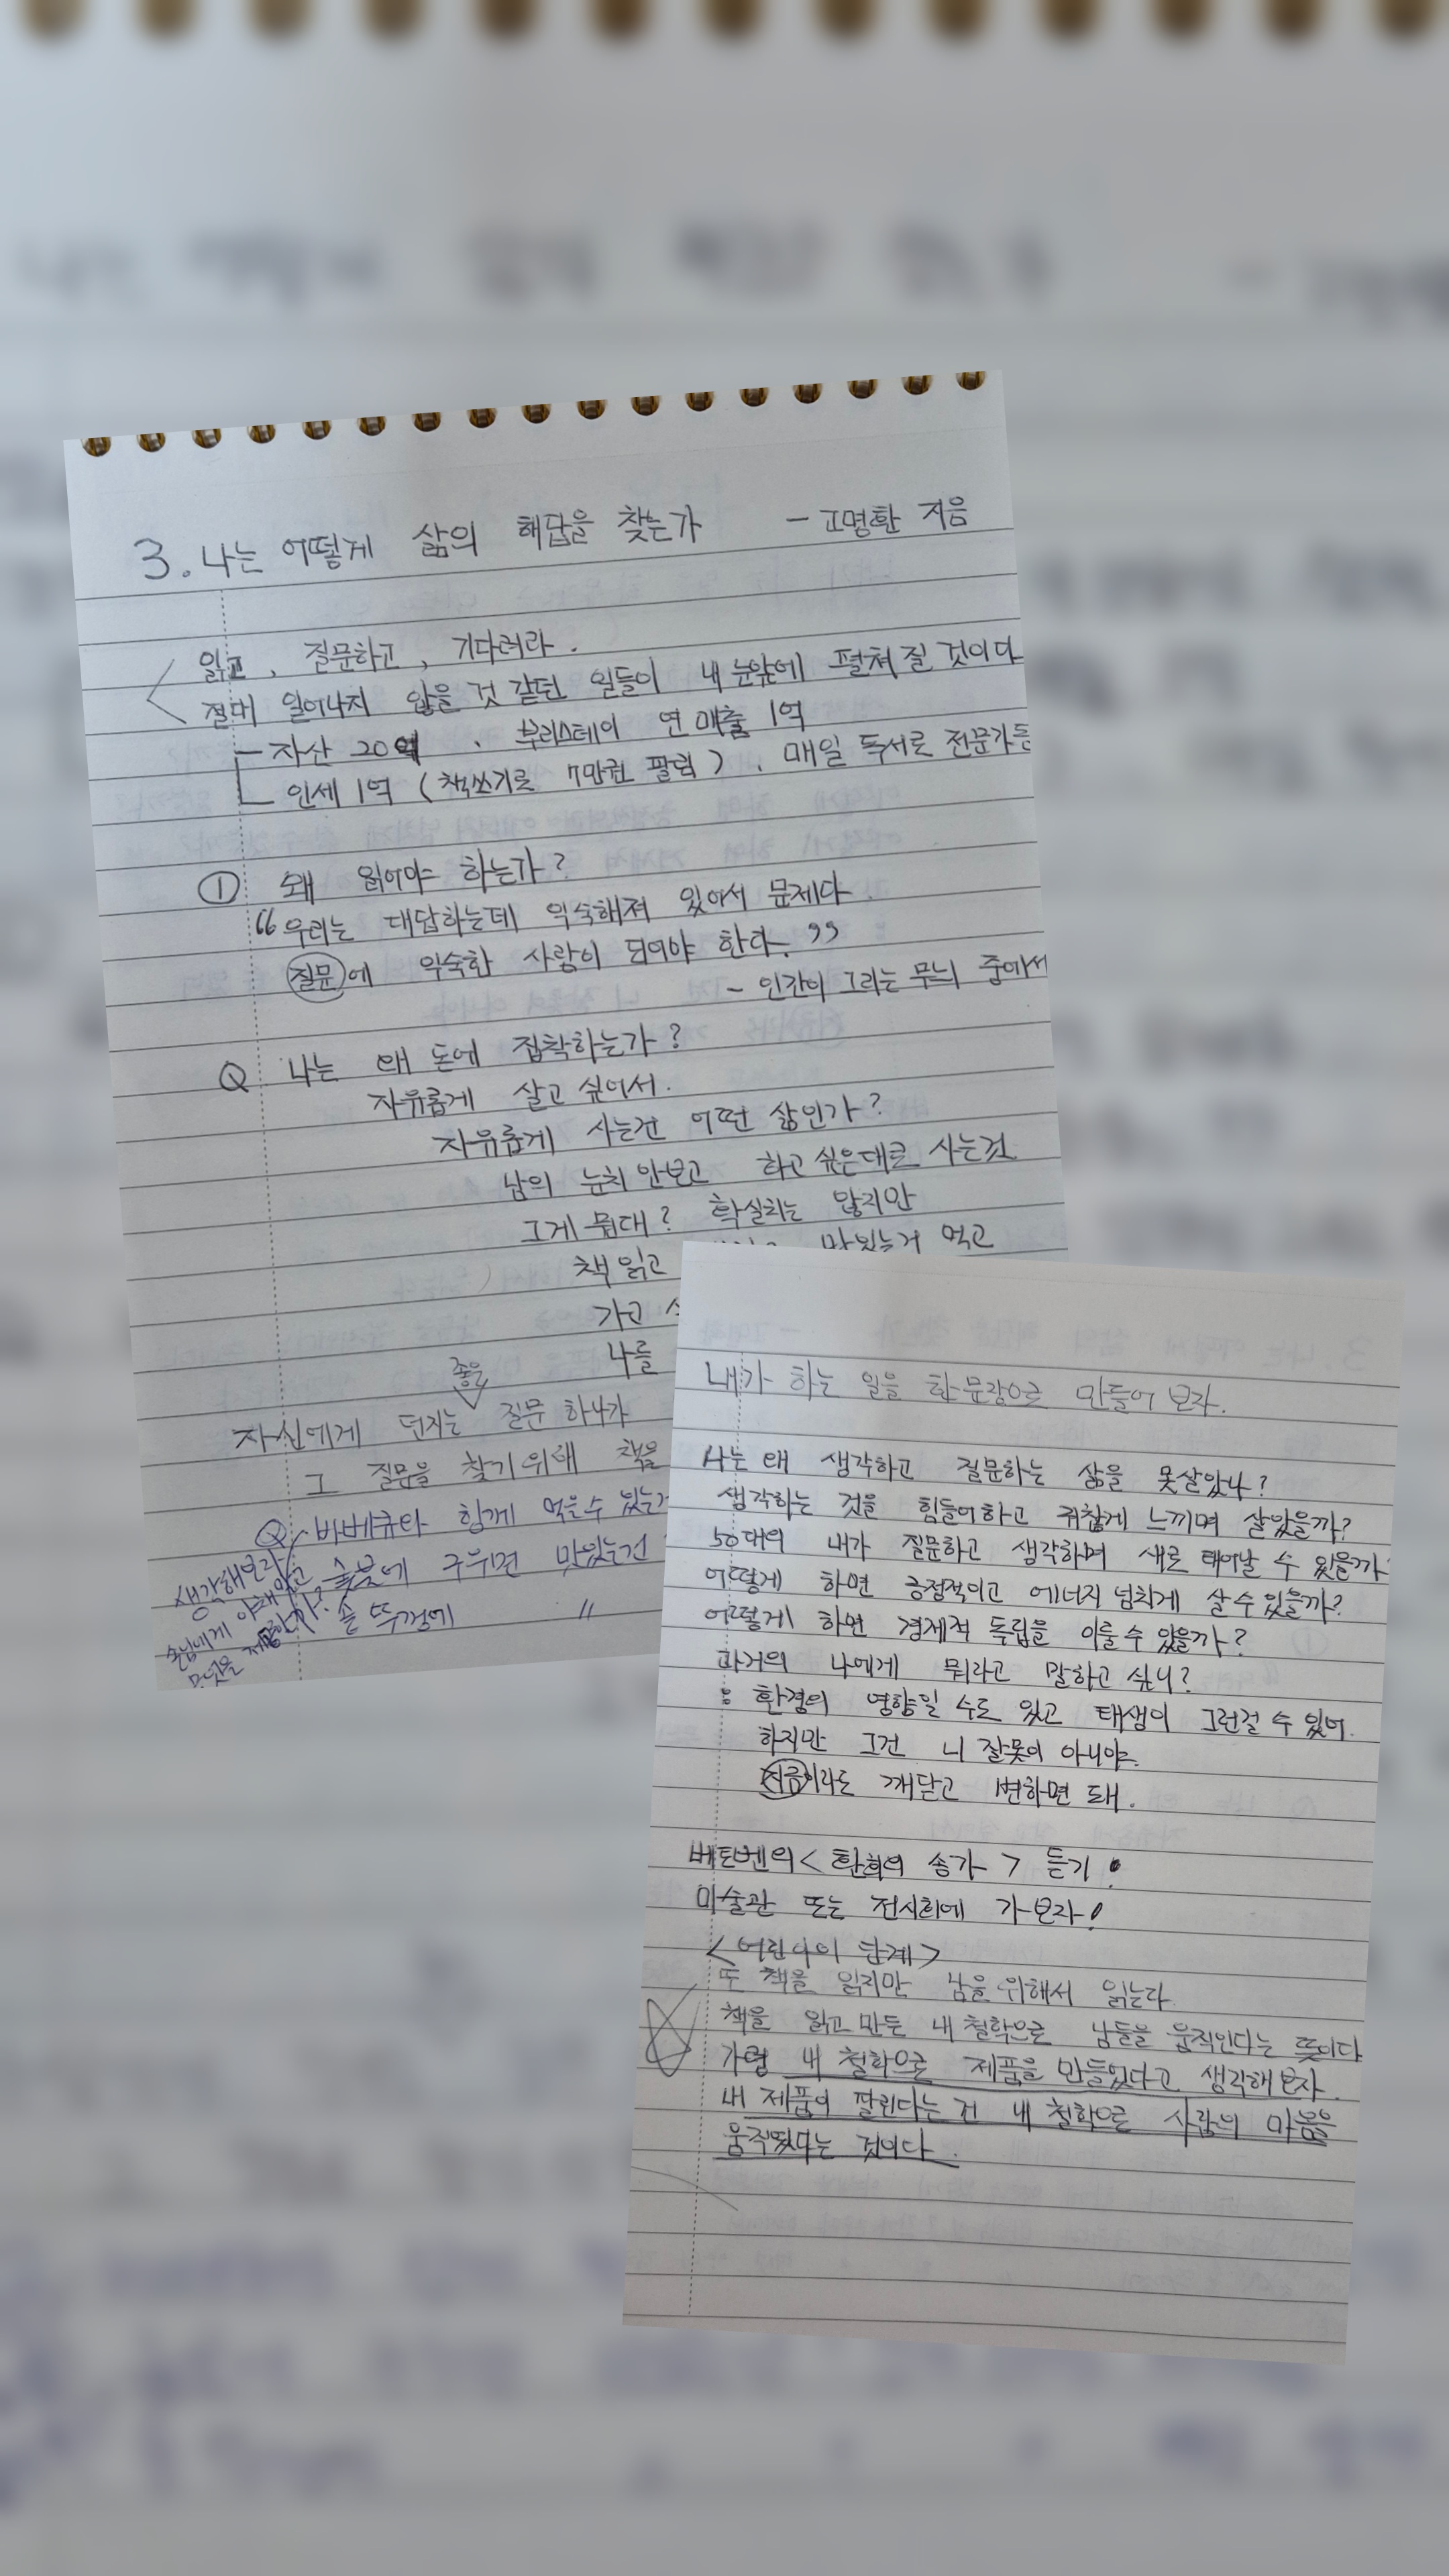 3. 나는 어떻게 삶의 해답을 찾는가 - 고명환 지음
읽고, 질문하고, 기다려라.
절대 일어나지 않을 것 같던 일들이 내 눈앞에 펼쳐질 것이다
자산 20억, 부리스테이 연 매출 1억
인세 1억 (책쓰기로 7만권 팔림), 매일 독서로 전문가 등
① 왜 읽어야 하는가?
"우리는 대답하는데 익숙해져 있어서 문제다.
질문에 익숙한 사람이 되어야 한다."
- 인간이 그리는 무늬 중에서
Q 나는 왜 돈에 집착하는가?
자유롭게 살고 싶어서.
자유롭게 사는건 어떤 삶인가?
남의 눈치 안보고 하고싶은대로 사는것
그게 뭔대? 확실치는 않지만
책 읽고 맛있는거 먹고
가고
나를
좋은
자신에게 던지는 질문 하나가
그 질문을 찾기위해 책을
Q 바베큐와 함께 먹을수 있는
숯불에 구우면 맛있는건
솥뚜껑에 〃
생각해보라
손님에게
내가 하는 일을 한문장으로 만들어 보자.
나는 왜 생각하고 질문하는 삶을 못살았나?
생각하는 것을 힘들어하고 귀찮게 느끼며 살았을까?
50대의 내가 질문하고 생각하며 새로 태어날 수 있을까
어떻게 하면 긍정적이고 에너지 넘치게 살수있을까?
어떻게 하면 경제적 독립을 이룰수 있을까?
과거의 나에게 뭐라고 말하고 싶니?
: 환경의 영향일 수도 있고 태생이 그런걸 수 있어.
하지만 그건 니 잘못이 아니야.
지금이라도 깨닫고 변하면 돼.
베토벤의 <환희의 송가> 듣기!
미술관 또는 전시회에 가보자!
<어린아이 단계>
또 책을 읽지만 남을 위해서 읽는다.
책을 읽고 만든 내 철학으로 남들을 움직인다는 뜻이다
가령 내 철학으로 제품을 만들었다고 생각해보자.
내 제품이 팔린다는 건 내 철학으로 사람의 마음을
움직였다는 것이다.